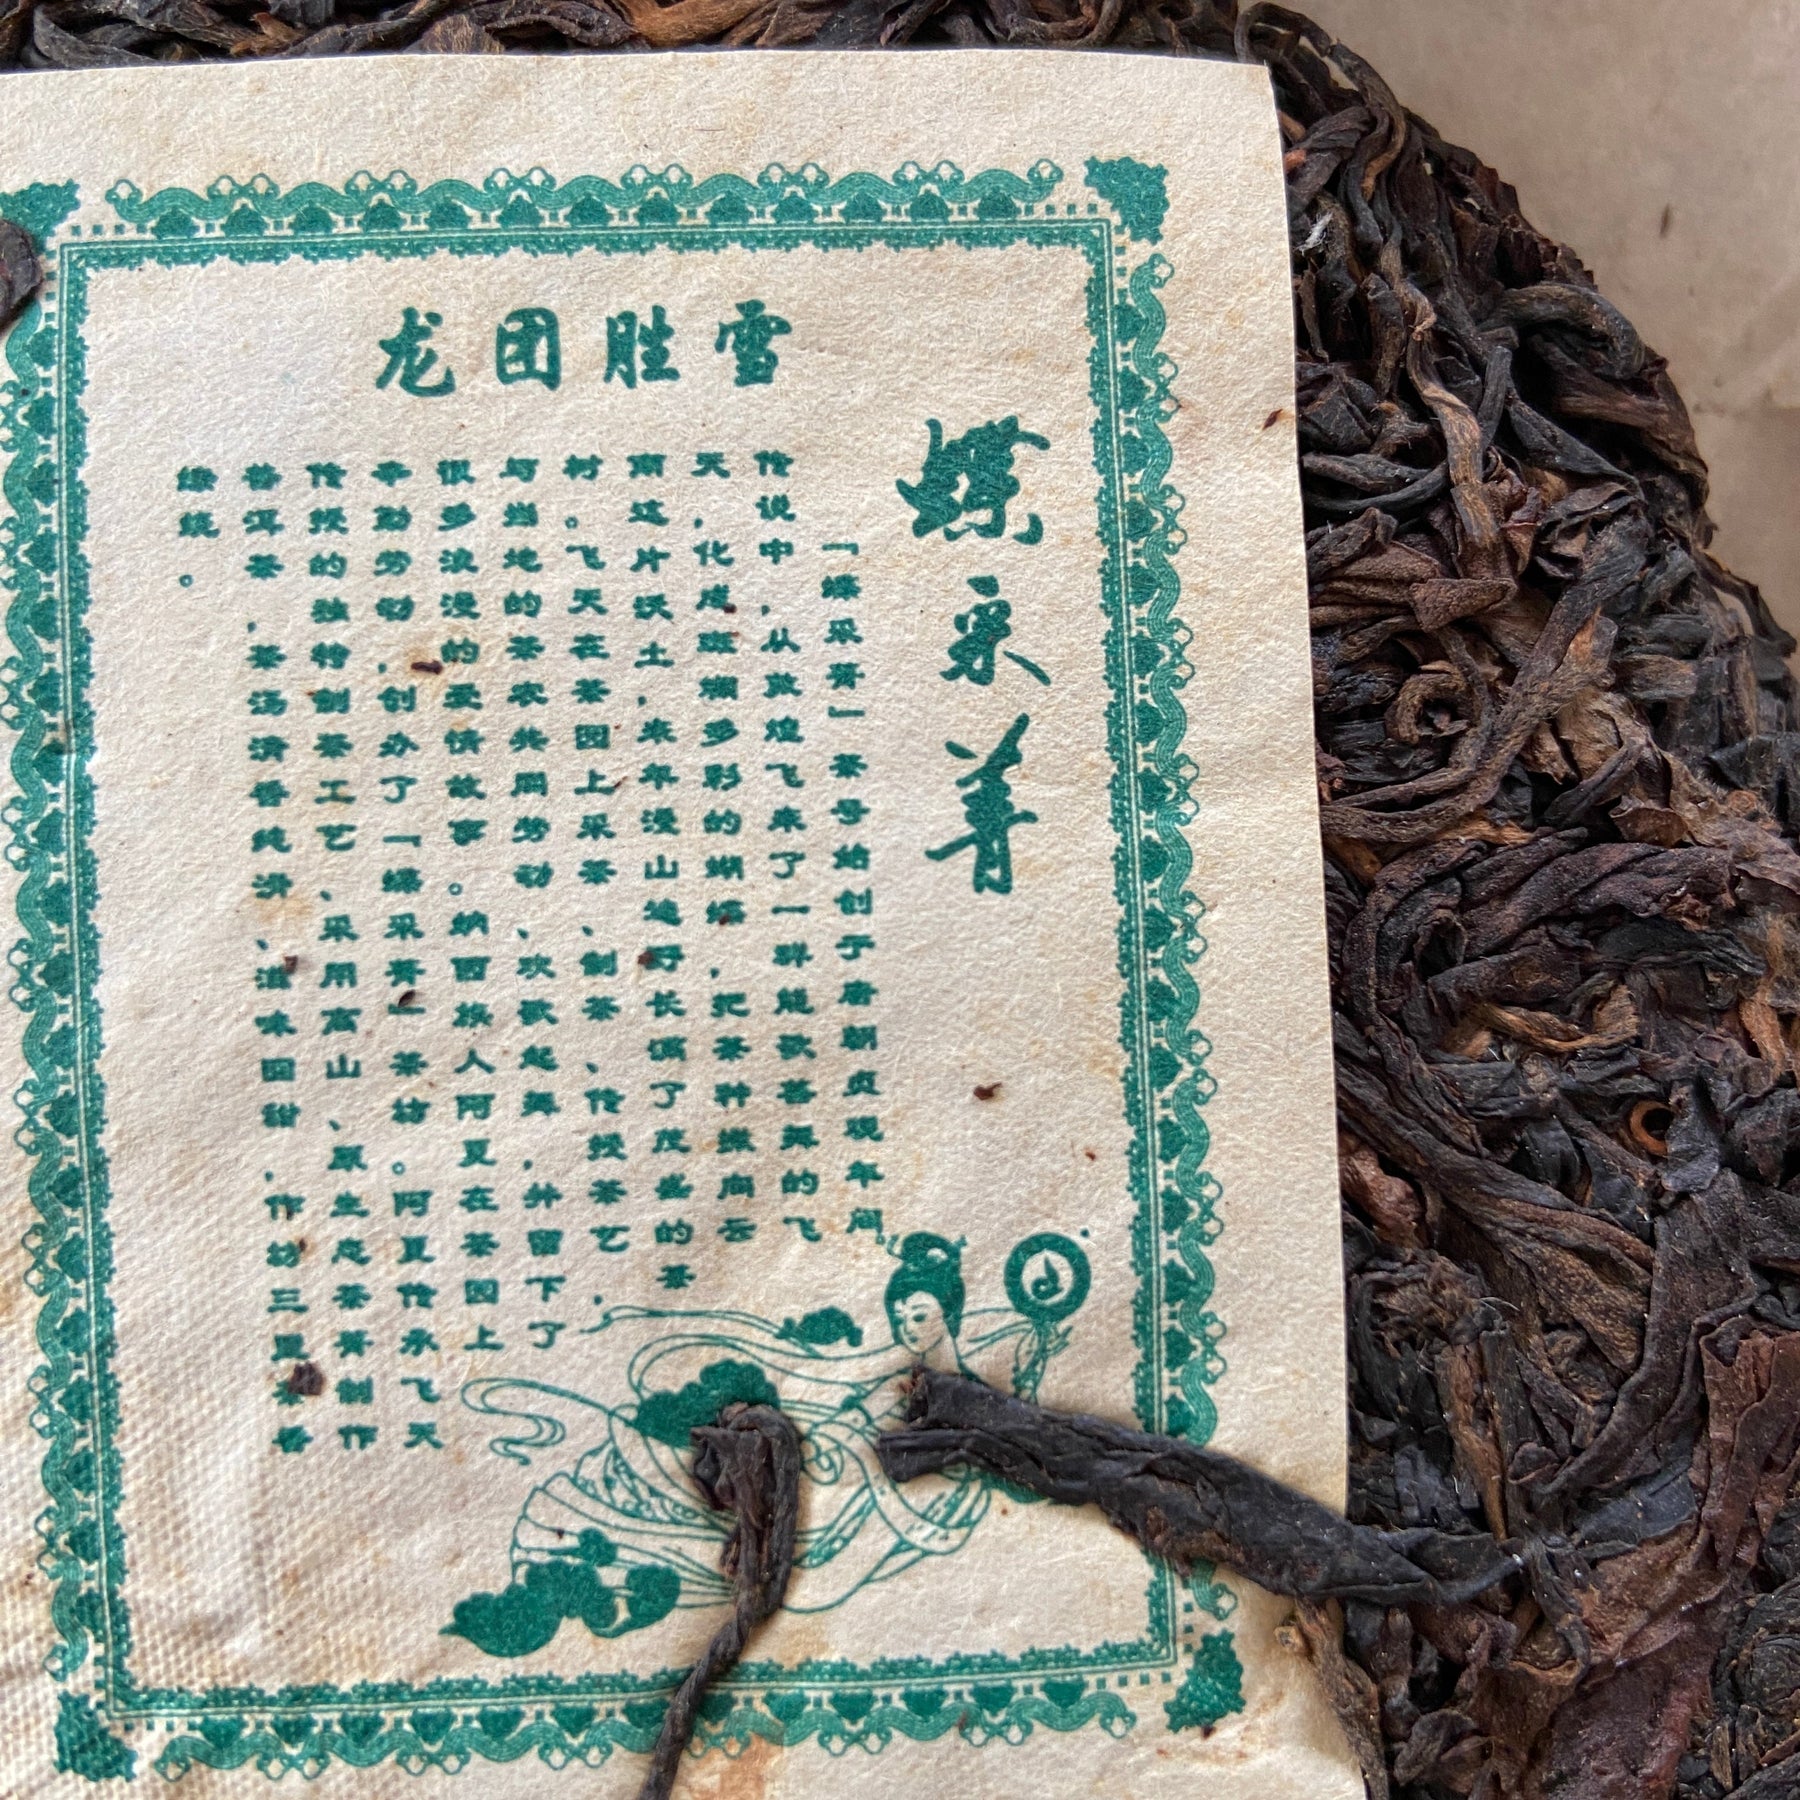 龙团胜雪
蝶采菁
「蝶采菁」茶号始创于唐朝贞观年间
传说中,从敦煌飞来了一群能歌善舞的飞
天,化成斑斓多彩的蝴蝶,把茶种撒向云
南这片沃土,来年漫山遍野长满了茂盛的茶
树。飞天在茶园上采茶、制茶、传授茶艺,
与当地的茶农共同劳动、欢歌起舞,并留下了
很多浪漫的爱情故事。纳西族人阿夏在茶园上
辛勤劳动,创办了「蝶采菁」茶坊。阿夏传承飞天
传授的独特制茶工艺、采用高山、原生态茶菁制作
普洱茶,茶汤清香纯净、滋味回甜,作坊三里茶香
缭绕。